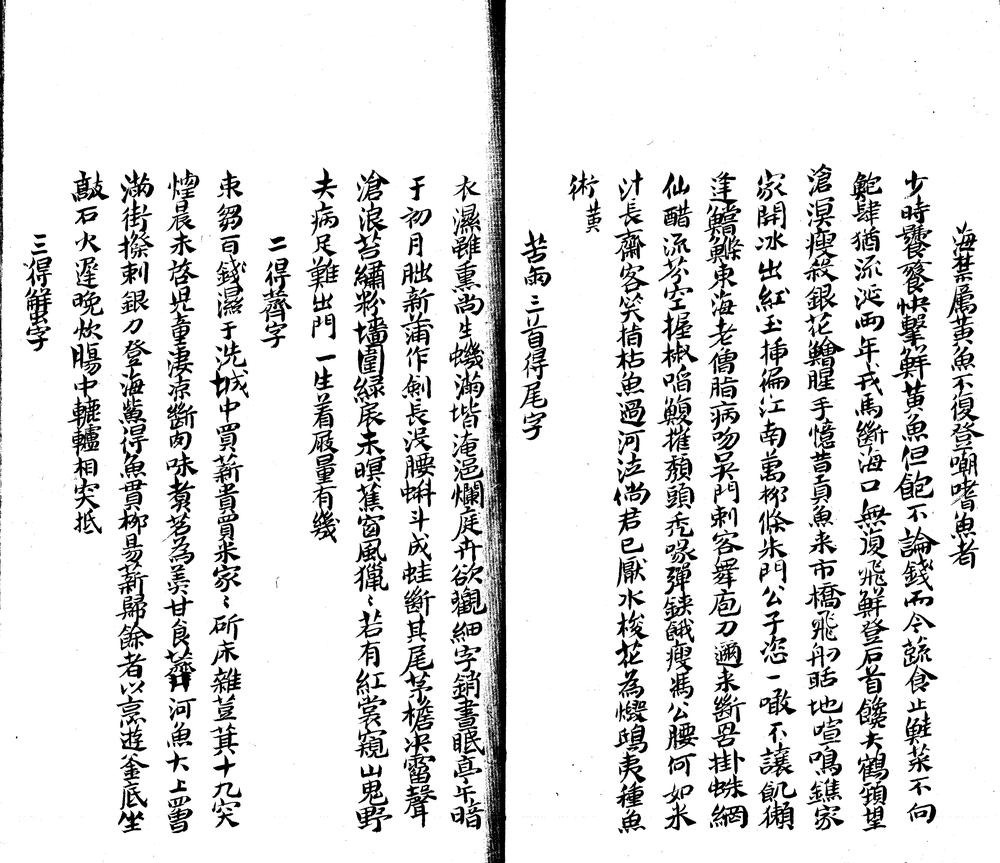 海禁厲黃魚不復登嘲嗜魚者
少時饕餮快擊鮮黃魚但飽不論錢而今蔬食止鮭菜不向
鮑肆猶流涎兩年戎馬斷海口無復飛鮮登石首饞夫鶴頸望
滄溟瘦殺銀花鱠腥手憶昔貢魚来市橋飛舠聒地喧鳴鐎家
家開冰出紅玉揷徧江南萬柳條朱門公子恣一噉不讓飢獺
逢鱨鰷東海老傖脂病吻吳門刺客舞庖刀邇来斷罟掛蛛網
仙醋流芬空握椒㗖鰒摧頹頭禿喙彈鋏餓瘦馮公腰何如米
汁長齋客笑指枯魚過河泣倘君已厭水梭花為爕鴟夷種魚
術黃
苦雨三首得尾字
衣濕難熏尚生蟣滿堦淹浥爛庭卉欲觀細字銷晝眠亭午暗
于初月朏新蒲作劍長浸腰蝌斗成蛙斷其尾茅檐决霤聲
滄浪苔繡粉墻圍綠扆未暝蕉窗風獵〻若有紅裳窺山鬼野
夫病足難出門一生着屐量有幾
二得薺字
束芻百錢濕于洗城中買薪貴買米家〻斫床雜荳萁十九突
煙晨未啓児童凄凉斷肉味煑茗為羮甘食薺河魚大上罾
滿街撩剌銀刀登海鮝得魚貫柳易薪歸餘者以烹遊釜底坐
敲石火遲晚炊腸中轆轤相突抵
三得蟹字